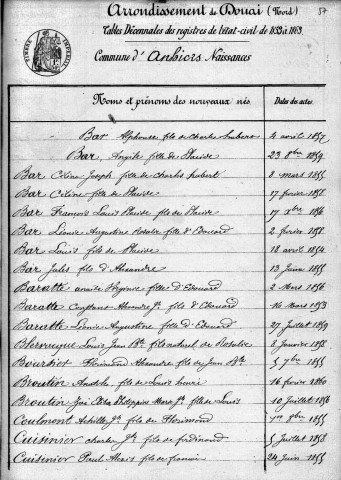 Arrondissement de Douai (Nord)
57
Tables Décennales des registres de l'état-civil de 1853 à 1863.
Commune d'Aubiers Naissances
Noms et prénoms des nouveaux nés
Dates des actes
Bar Alphonse fils de Charles hubert 4 avril 1857
Bar, Angèle fille de Placide 23 8bre 1859
Bar Céline Joseph fille de charles hubert 8 mars 1855
Bar Céline fille de Placide 17 février 1858
Bar François Louis Placide fils de Placide 17 Xbre 1856
Bar Léonie Augustine Rosalie fille d'Edouard 2 février 1858
Bar Louis fils de Placide 18 avril 1854
Bar Jules fils d'Alexandre 13 Juin 1855
Baratte Hyginie fille d'Edouard 2 Mars 1856
Baratte Constant Alexandre Jh fils d'Edouard 16 Mars 1853
Baratte Léonie Augustine fille d'Edouard 27 Juillet 1859
Louis Jean Bte fils naturel de Rosalie 8 Janvier 1858
Bourbiot Florimond Alexandre fils de Jean Bte 5 7bre 1855
Broutin Anatole fils de Louis henri 16 février 1860
Broutin Zoé Philippine Marie Jh fille de Louis 10 Juillet 1856
Coulmont Achille Jh fils de Florimond 8bre 1855
Cuisinier charles Jh fils de ferdinand 5 Juillet 1858
Cuisinier Paul Alexis fils de francois 24 Juin 1855